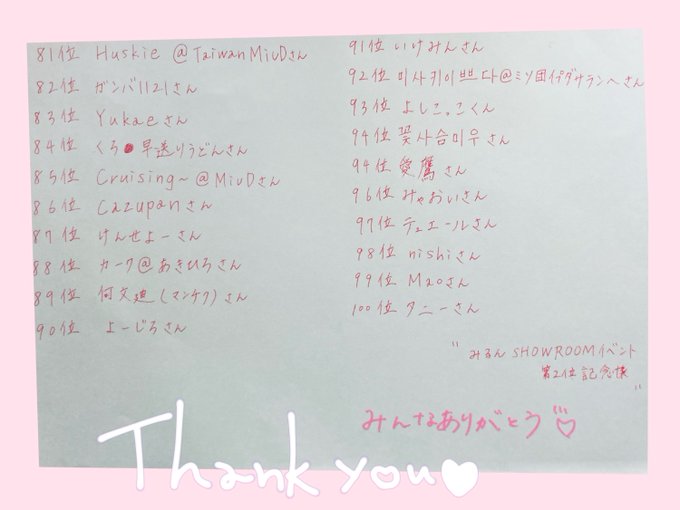 81位 Huskie @TaiwanMiuDさん
82位 ガンバ1121さん
83位 Yukaeさん
84位 くろ●早送りうどんさん
85位 Cruising~@MiuDさん
86位 Cazupanさん
87位 けんせよーさん
88位 カーク@あきひろさん
89位 何文迪(マンチク)さん
90位 よーじろさん
91位 いけみんさん
92位 미사키이쁘다@ミソ団イプダサランヘさん
93位 よしこっこくん
94位 꽃사슴미우さん
94位 愛鷹さん
96位 みゃおいさん
97位 デュエールさん
98位 nishiさん
99位 Maoさん
100位 タニーさん
"みるん SHOWROOMイベント
第2位記念様"
みんなありがとう♡
Thank you♥